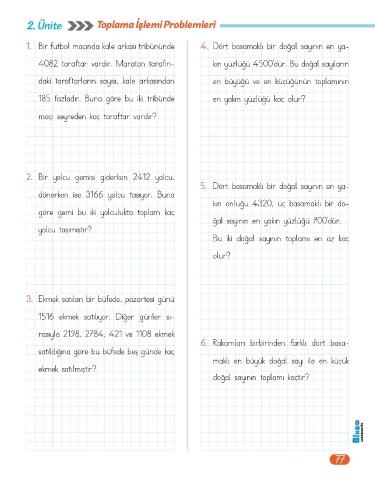 2. Ünite Toplama İşlemi Problemleri
1. Bir futbol maçında kale arkası tribününde
4082 taraftar vardır. Maraton tarafın-
daki taraftarların sayısı, kale arkasından
185 fazladır. Buna göre bu iki tribünde
maçı seyreden kaç taraftar vardır?
2. Bir yolcu gemisi giderken 2412 yolcu,
dönerken ise 3166 yolcu taşıyor. Buna
göre gemi bu iki yolculukta toplam kaç
yolcu taşımıştır?
3. Ekmek satılan bir büfede, pazartesi günü
1516 ekmek satılıyor. Diğer günler sı-
rasıyla 2198, 2784, 421 ve 1108 ekmek
satıldığına göre bu büfede beş günde kaç
ekmek satılmıştır?
4. Dört basamaklı bir doğal sayının en ya-
kın yüzlüğü 4500'dür. Bu doğal sayıların
en büyüğü ve en küçüğünün toplamının
en yakın yüzlüğü kaç olur?
5. Dört basamaklı bir doğal sayının en ya-
kın onluğu 4320, üç basamaklı bir do-
ğal sayının en yakın yüzlüğü 700'dür.
Bu iki doğal sayının toplamı en az kaç
olur?
6. Rakamları birbirinden farklı dört basa-
maklı en büyük doğal sayı ile en küçük
doğal sayının toplamı kaçtır?
77